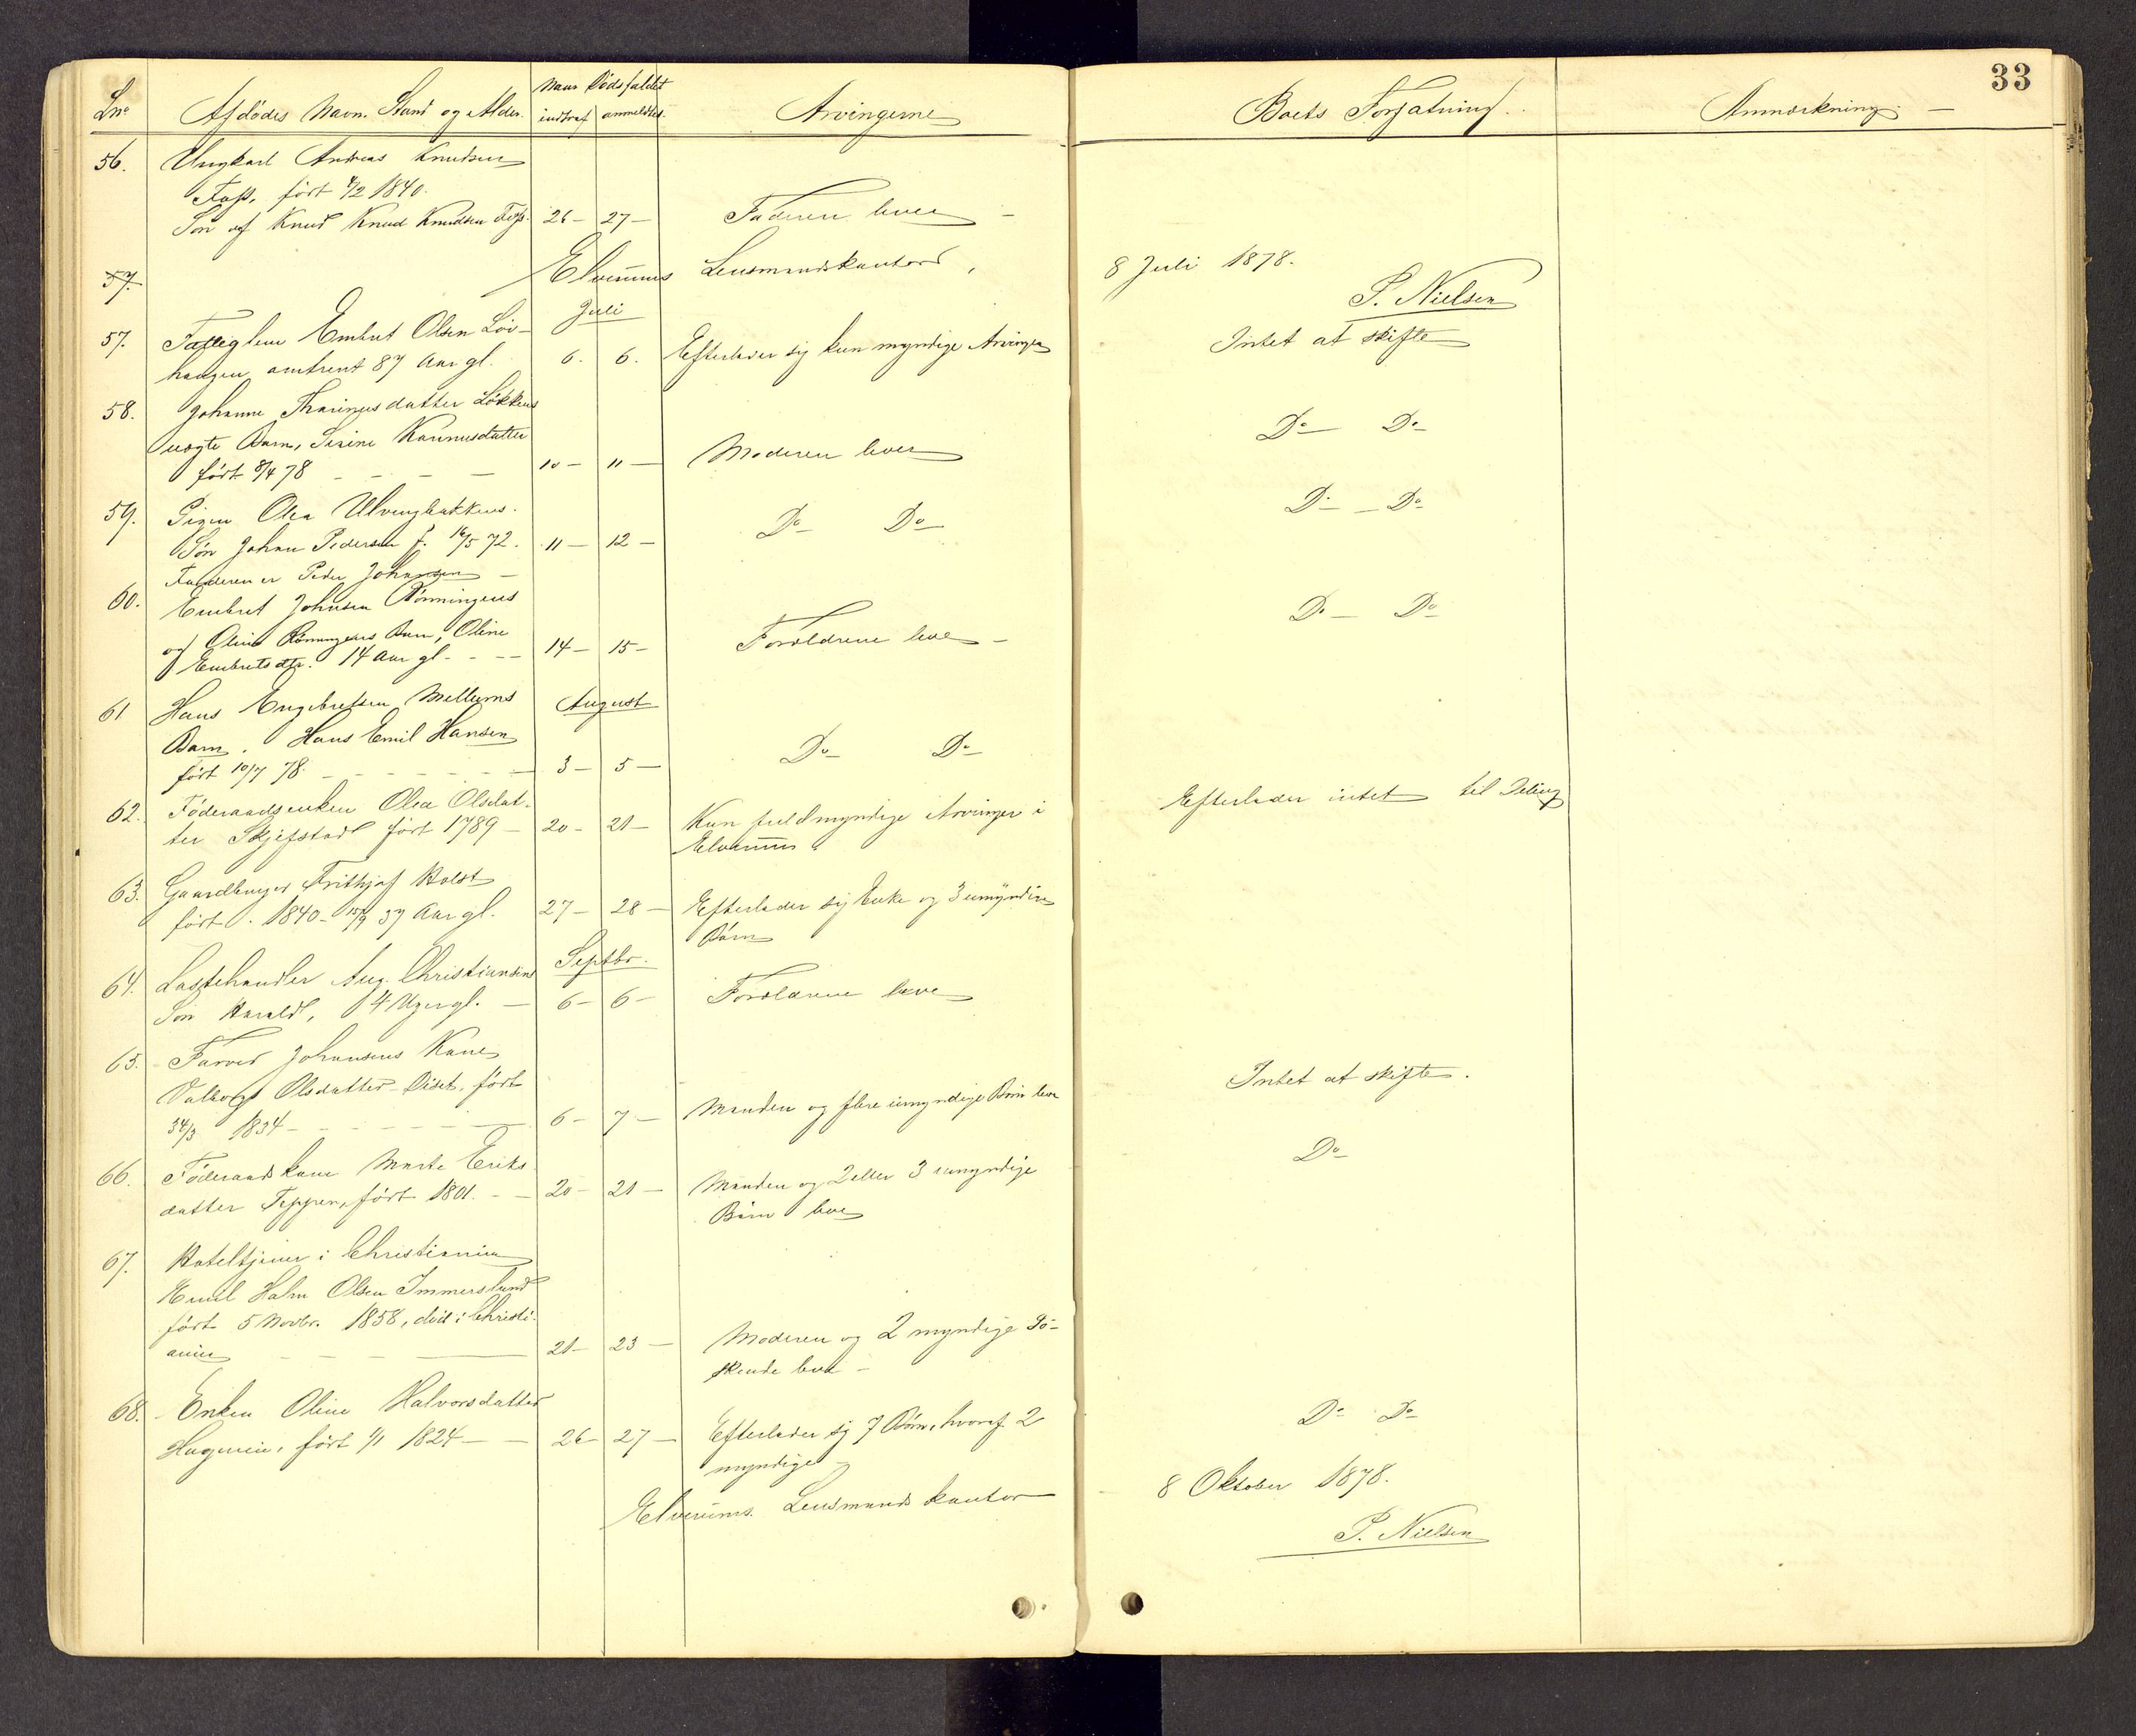 33
Lnr. Afdödes Navn. Stand og Alder. Naar Dödsfaldet indtraf anmeldtes. Arvingerne Boets Forfatning. Anmærkning. —
56. Ungkarl Andreas Knudsen
Foss, född 4/2 1840.
Sön af Knud Knud Knudsen Foss. 26 — 27 — Faderen lever —
57. Elverums Lensmandskontor, 8 Juli 1878.
P. Nielsen
Juli
57. Fattiglem Embret Olsen Löv-
haugen omtrent 87 Aar gl. 6. 6. Efterlader sig kun myndige Arvinger Intet at skifte
58. Johanne Thorinusdatter Lökkens
uægte Barn, Sirine Karinusdatter
född 8/4 78 — — — — 10 — 11 — Moderen lever Do — Do —
59. Pigen Olea Ulvengbakkens
Sön Johan Pedersen f. 16/5 72. 11 — 12 — Do — Do — Do — Do
Faderen er Peder Johansen —
60. Embret Johnsen Rönningens
og Oline Rönningens Barn, Oline
Embretsdtr. 14 Aar gl. — — 14 — 15 — Forældrene leve — Do — Do
61 Hans Engebretsen Mellums August
Barn. Hans Emil Hansen
född 10/7 78. — — — — 3 — 5 — Do — Do —
62. Föderaadsenken Olea Olsdat-
ter Skjefstad född 1789 — 20 — 21 — Kun fuldmyndige Arvinger i Efterlader intet til Deling
Elverum
63. Gaardbruger Frithjof Holst
född 1840 — 15/9 37 Aar gl. 27 — 28 — Efterlader sig Enke og 3 umyndige
Börn
Septbr.
64. Lastehandler Aug. Christiansens
Sön Harald, 4 Uger gl. — 6 — 6 — Forældrene leve
65. Farver Johansens Kone
Valborg Olsdatter Diset, född
24/3 1834 — — — — 6 — 7 — Manden og flere umyndige Börn leve Intet at skifte.
66. Föderaadskone Marte Eriks-
datter Teppen, född 1801. — 20 — 21 — Manden og 2 eller 3 umyndige Do —
Börn leve
67. Hoteltjener i Christiania
Emil Halm Olsen Immerslund
född 5 Novbr. 1858, död i Christi-
ania — — — 21 — 23 — Moderen og 2 myndige Sö-
skende leve —
68. Enken Oline Halvorsdatter
Hagmein, född 1/1 1824 — — 26 — 27 — Efterlader sig 7 Börn, hvoraf 2 Do — Do —
myndige —
Elverums Lensmandskontor 8 Oktober 1878.
P. Nielsen